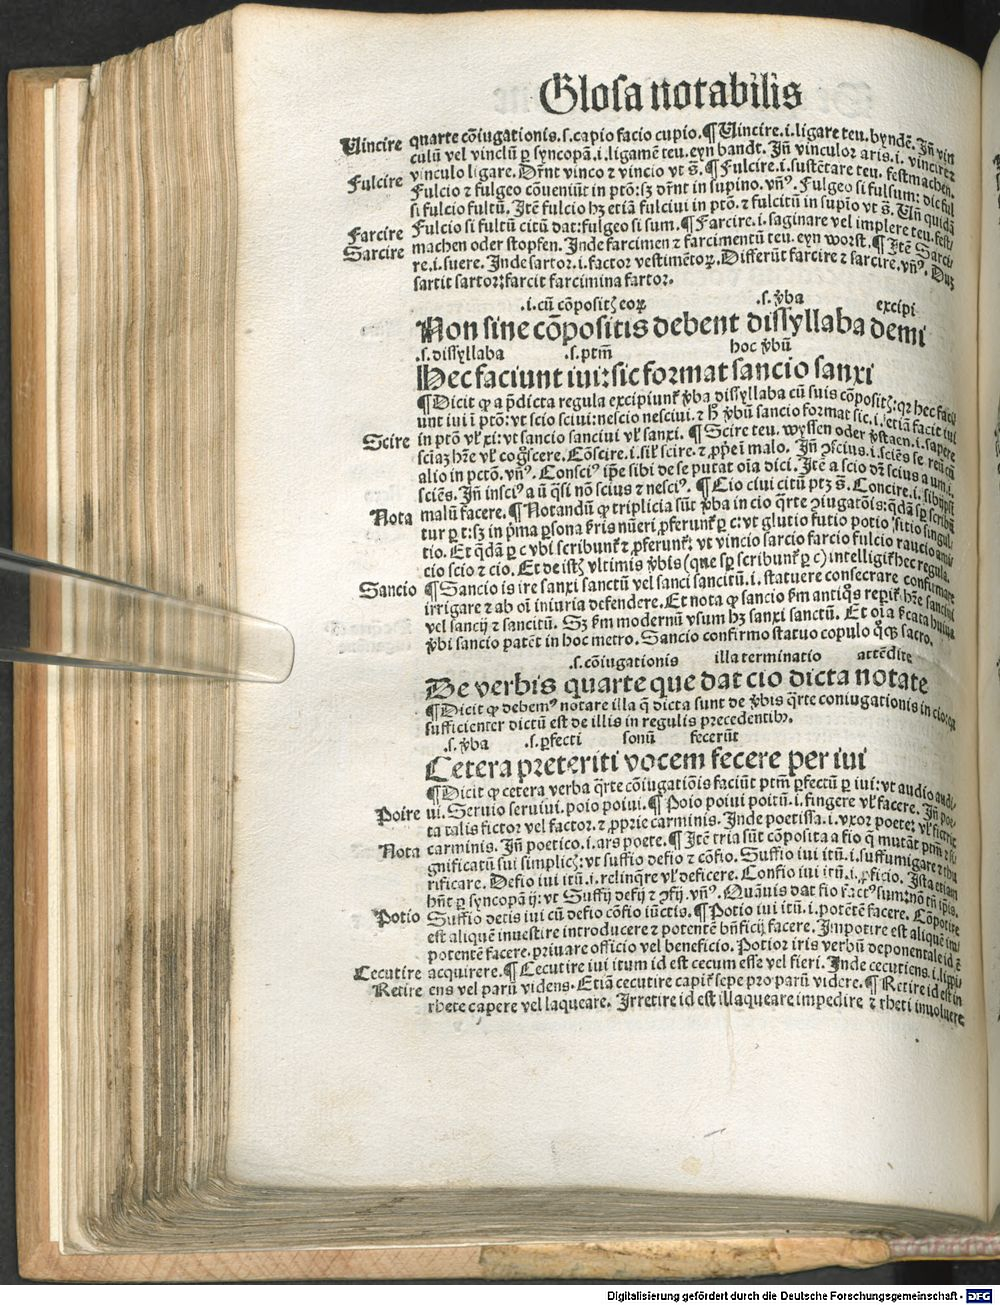 Glosa notabilis
Vincire quarte cõiugationis.s.capio facio cupio.¶Vincire.i.ligare teu.byndẽ.Jñ vin
culũ vel vinclũ ꝑ syncopã.i.ligamẽ teu.eyn bandt. Jñ vinculor aris.i. vincire ⁊
vinculo ligare. Dr̃nt vinco ⁊ vincio vt s̃. ¶Fulcire.i.sustẽtare teu. festmachen.
Fulcire
Fulcio ⁊ fulgeo cõueniũt in ptõ:sꝫ dr̃nt in supino. vñ⁹. Fulgeo si fulsum: dic ful
si fulcio fultũ. Jtẽ fulcio hꝫ etiã fulciui in ptõ. ⁊ fulcitũ in supio vt s̃. Vñ quidã
Fulcio si fultũ citũ dat:fulgeo si sum. ¶Farcire.i.saginare vel implere teu.fest
Farcire
Sarcire machen oder stopfen. Jnde farcimen ⁊ farcimentũ teu. eyn worst. ¶Jtẽ Sarci
re.i.suere. Jnde sartor.i.factor vestimẽtoꝝ. Differũt farcire ⁊ sarcire.vñ⁹. Dus
sartit sartor:farcit farcimina fartor.
.i.cũ cõpositꝭ eoꝝ .s.v̾ba excipi
Non sine cõpositis debent dissyllaba demi
.s.dissyllaba .s.ptm̃ hoc v̾bũ
Hec faciunt iui:sic format sancio sanxi
¶Dicit ꝙ a p̃dicta regula excipiunt᷑ v̾ba dissyllaba cũ suis cõpositꝭ:qꝛ hec faci
unt iui ĩ ptõ:vt scio sciui:nescio nesciui. ⁊ h̾ v̾bũ sancio format sic.i.etiã facit iui
Scire in ptõ vl̾ xi:vt sancio sanciui vl̾ sanxi. ¶Scire teu. wyssen oder v̾staen.i.sapere
sciaꝫ hr̃e vl̾ cog̾scere. Cõscire.i.sil̾ scire. ⁊ ꝓp̃e ĩ malo. Jñ ꝯscius.i.sciẽs se
alio in pctõ. vñ⁹. Consci⁹ ip̃e sibi de se putat oĩa dici. Jtẽ a scio dr̃ scius a um.i.
sciẽs. Jñ insci⁹ a ũ q̃si nõ scius ⁊ nesci⁹. ¶Cio ciui citũ ptꝫ s̃. Concire.i.
Nota malũ facere. ¶Notandũ ꝙ triplicia sũt v̾ba in cio q̃rte ꝯiugatõis:q̃dã sꝑ scribũ
tur ꝑ t:sꝫ in p̾ma ꝑsona p̾ris nũeri ꝓferunt᷑ ꝑ c:vt glutio futio potio sitio singul
tio. Et q̃dã ꝑ c vbi scribunt᷑ ⁊ ꝓferunt᷑: vt vincio sarcio farcio fulcio raucio ami
cio scio ⁊ cio. Et de istꝭ vltimis v̾bis (que sꝑ scribunt᷑ ꝑ c) intelligit᷑ hec regula.
Sancio ¶Sancio is ire sanxi sanctũ vel sanci sancitũ.i.statuere consecrare confirmare
irrigare ⁊ ab oĩ iniuria defendere. Et nota ꝙ sancio k̾m antiq̃s reꝑit᷑ hr̃e sanciui
vel sancij ⁊ sancitũ. Sꝫ k̾m modernũ vsum hꝫ sanxi sanctũ. Et oĩa significata huius
v̾bi sancio patẽt in hoc metro. Sancio confirmo statuo copulo q̃qꝫ sacro.
.s.cõiugationis illa terminatio attẽdite
De verbis quarte que dat cio dicta notate
¶Dicit ꝙ debem⁹ notare illa q̃ dicta sunt de v̾bis q̃rte coniugationis in cio:qꝛ
sufficienter dictũ est de illis in regulis precedentibꝰ.
.s.v̾ba .s.ꝑfecti sonũ fecerũt
Cetera preteriti vocem fecere per iui
¶Dicit ꝙ cetera verba q̃rte cõiugatiõis faciũt ptm̃ ꝑfectũ ꝑ iui:vt audio audi
Poire ui. Seruio seruiui.poio poiui. ¶Poio poiui poitũ.i.fingere vl̾ facere. Jñ poe-
ta talis fictor vel factor. ⁊ ꝓprie carminis. Jnde poetissa.i.vxor poete: vl̾ fictrix
Nota carminis. Jñ poetico.i.ars poete. ¶Jtẽ tria sũt cõposita a fio q̃ mutãt ptm̃ ⁊ si
gnificatũ sui simplicꝭ:vt suffio defio ⁊ cõfio. Suffio iui itũ.i.suffumigare ⁊ thu
rificare. Defio iui itũ.i.relinq̃re vl̾ deficere. Confio iui itũ.i.ꝑficio. Jsta etiam
hñt ꝑ syncopã ij: vt Suffij defij ⁊ ꝯfij.vñ⁹. Quãuis dat fio fact⁹ sum:nõ tñ ip̃is.
Potio Suffio detis iui cũ defio cõfio iũctis. ¶Potio iui itũ.i.potẽtẽ facere. Cõpotire
est aliquẽ inuestire introducere ⁊ potentẽ bñficij facere. Jmpotire est aliquẽ im
potentẽ facere.priuare officio vel beneficio. Potior iris verbũ deponentale id ẽ
Cecutire acquirere.¶Cecutire iui itum id est cecum esse vel fieri. Jnde cecutiens.i.lippi
Retire ens vel parũ videns. Etiã cecutire capit᷑ sepe pro parũ videre. ¶Retire id est in
rhete capere vel laqueare. Jrretire id est illaqueare impedire ⁊ rheti inuoluere
Digitalisierung gefördert durch die Deutsche Forschungsgemeinschaft - DFG